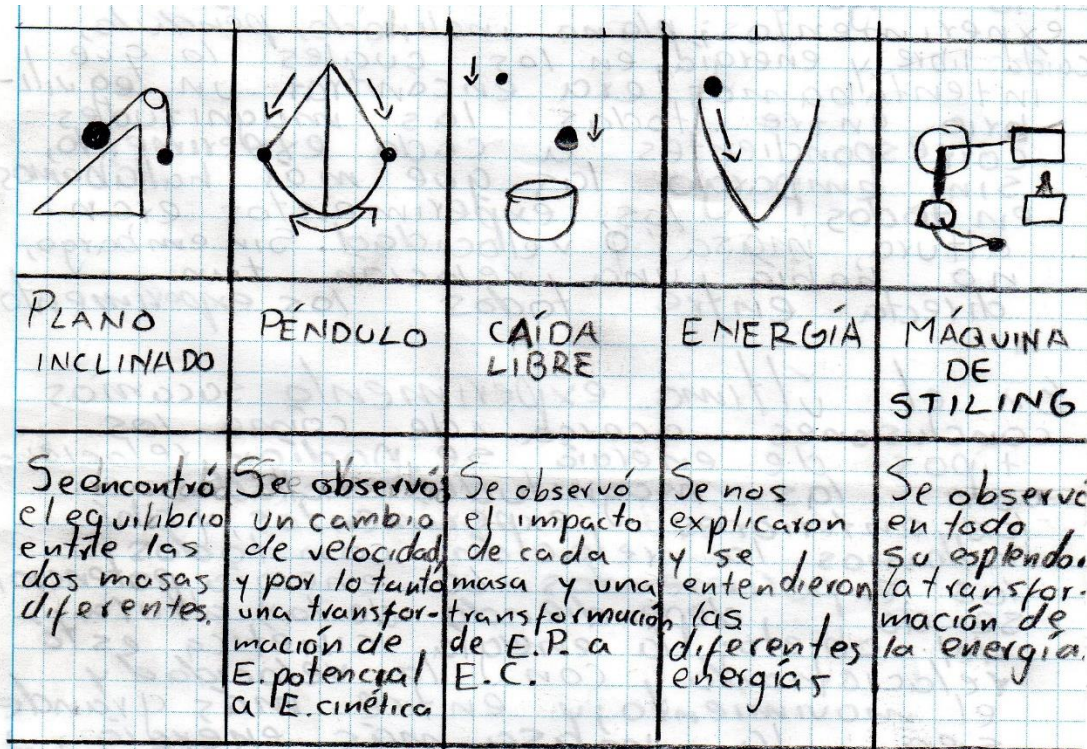 PLANO
INCLINADO
PÉNDULO
CAÍDA
LIBRE
ENERGÍA
MÁQUINA
DE
STILING
Se encontró
el equilibrio
entre las
dos masas
diferentes.
Se observó
un cambio
de velocidad,
y por lo tanto
una transfor-
mación de
E. potencial
a E. cinética
Se observó
el impacto
de cada
masa y una
transformación
de E.P. a
E.C.
Se nos
explicaron
y se
entendieron
las
diferentes
energías
Se observó
en todo
su esplendor
la transfor-
mación de
la energía.